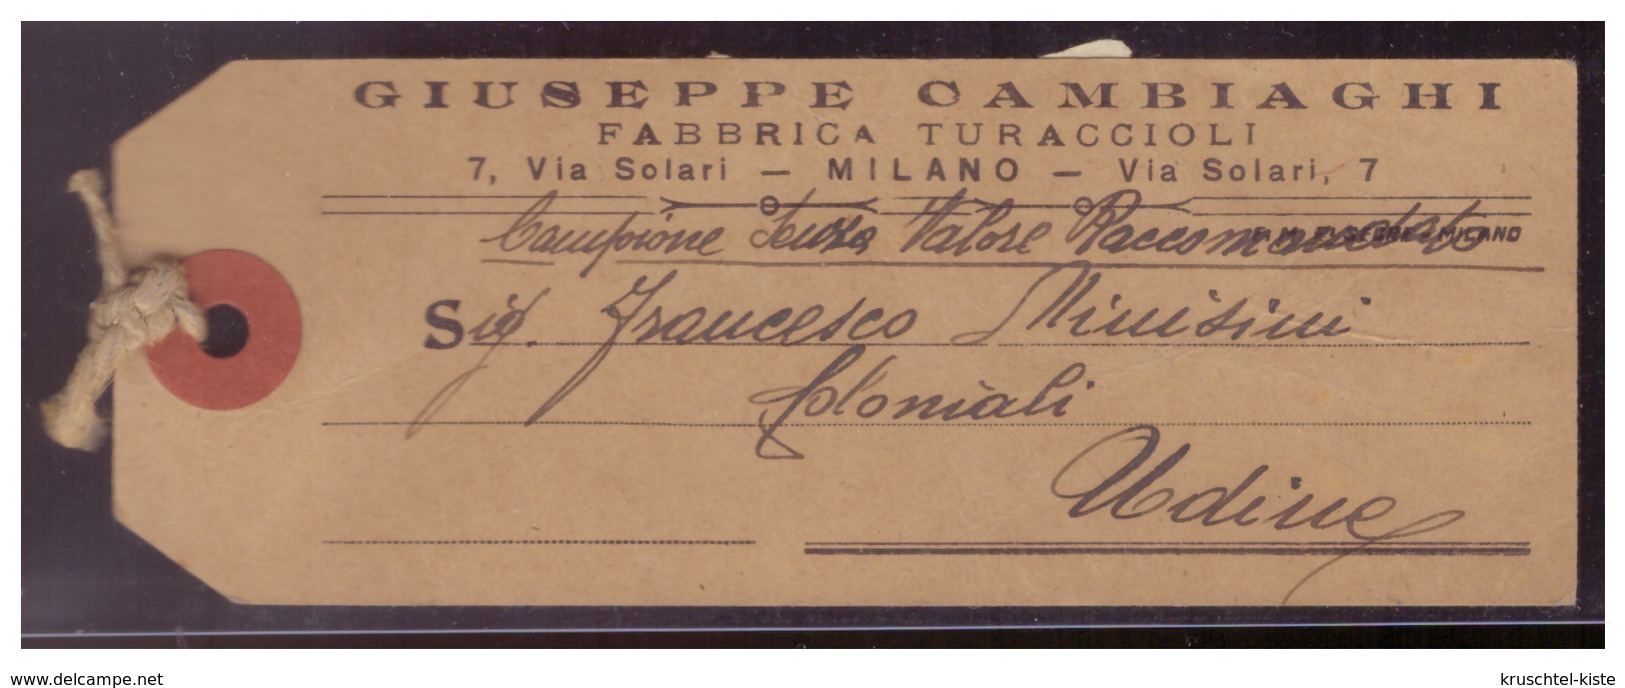 GIUSEPPE CAMBIAGHI
FABBRICA TURACCIOLI
7, Via Solari — MILANO — Via Solari, 7
Campione Senza Valore Raccomandato
MILANO
Sig. Francesco Minisini
Coloniali
Udine
www.delcampe.net
kruschtel-kiste